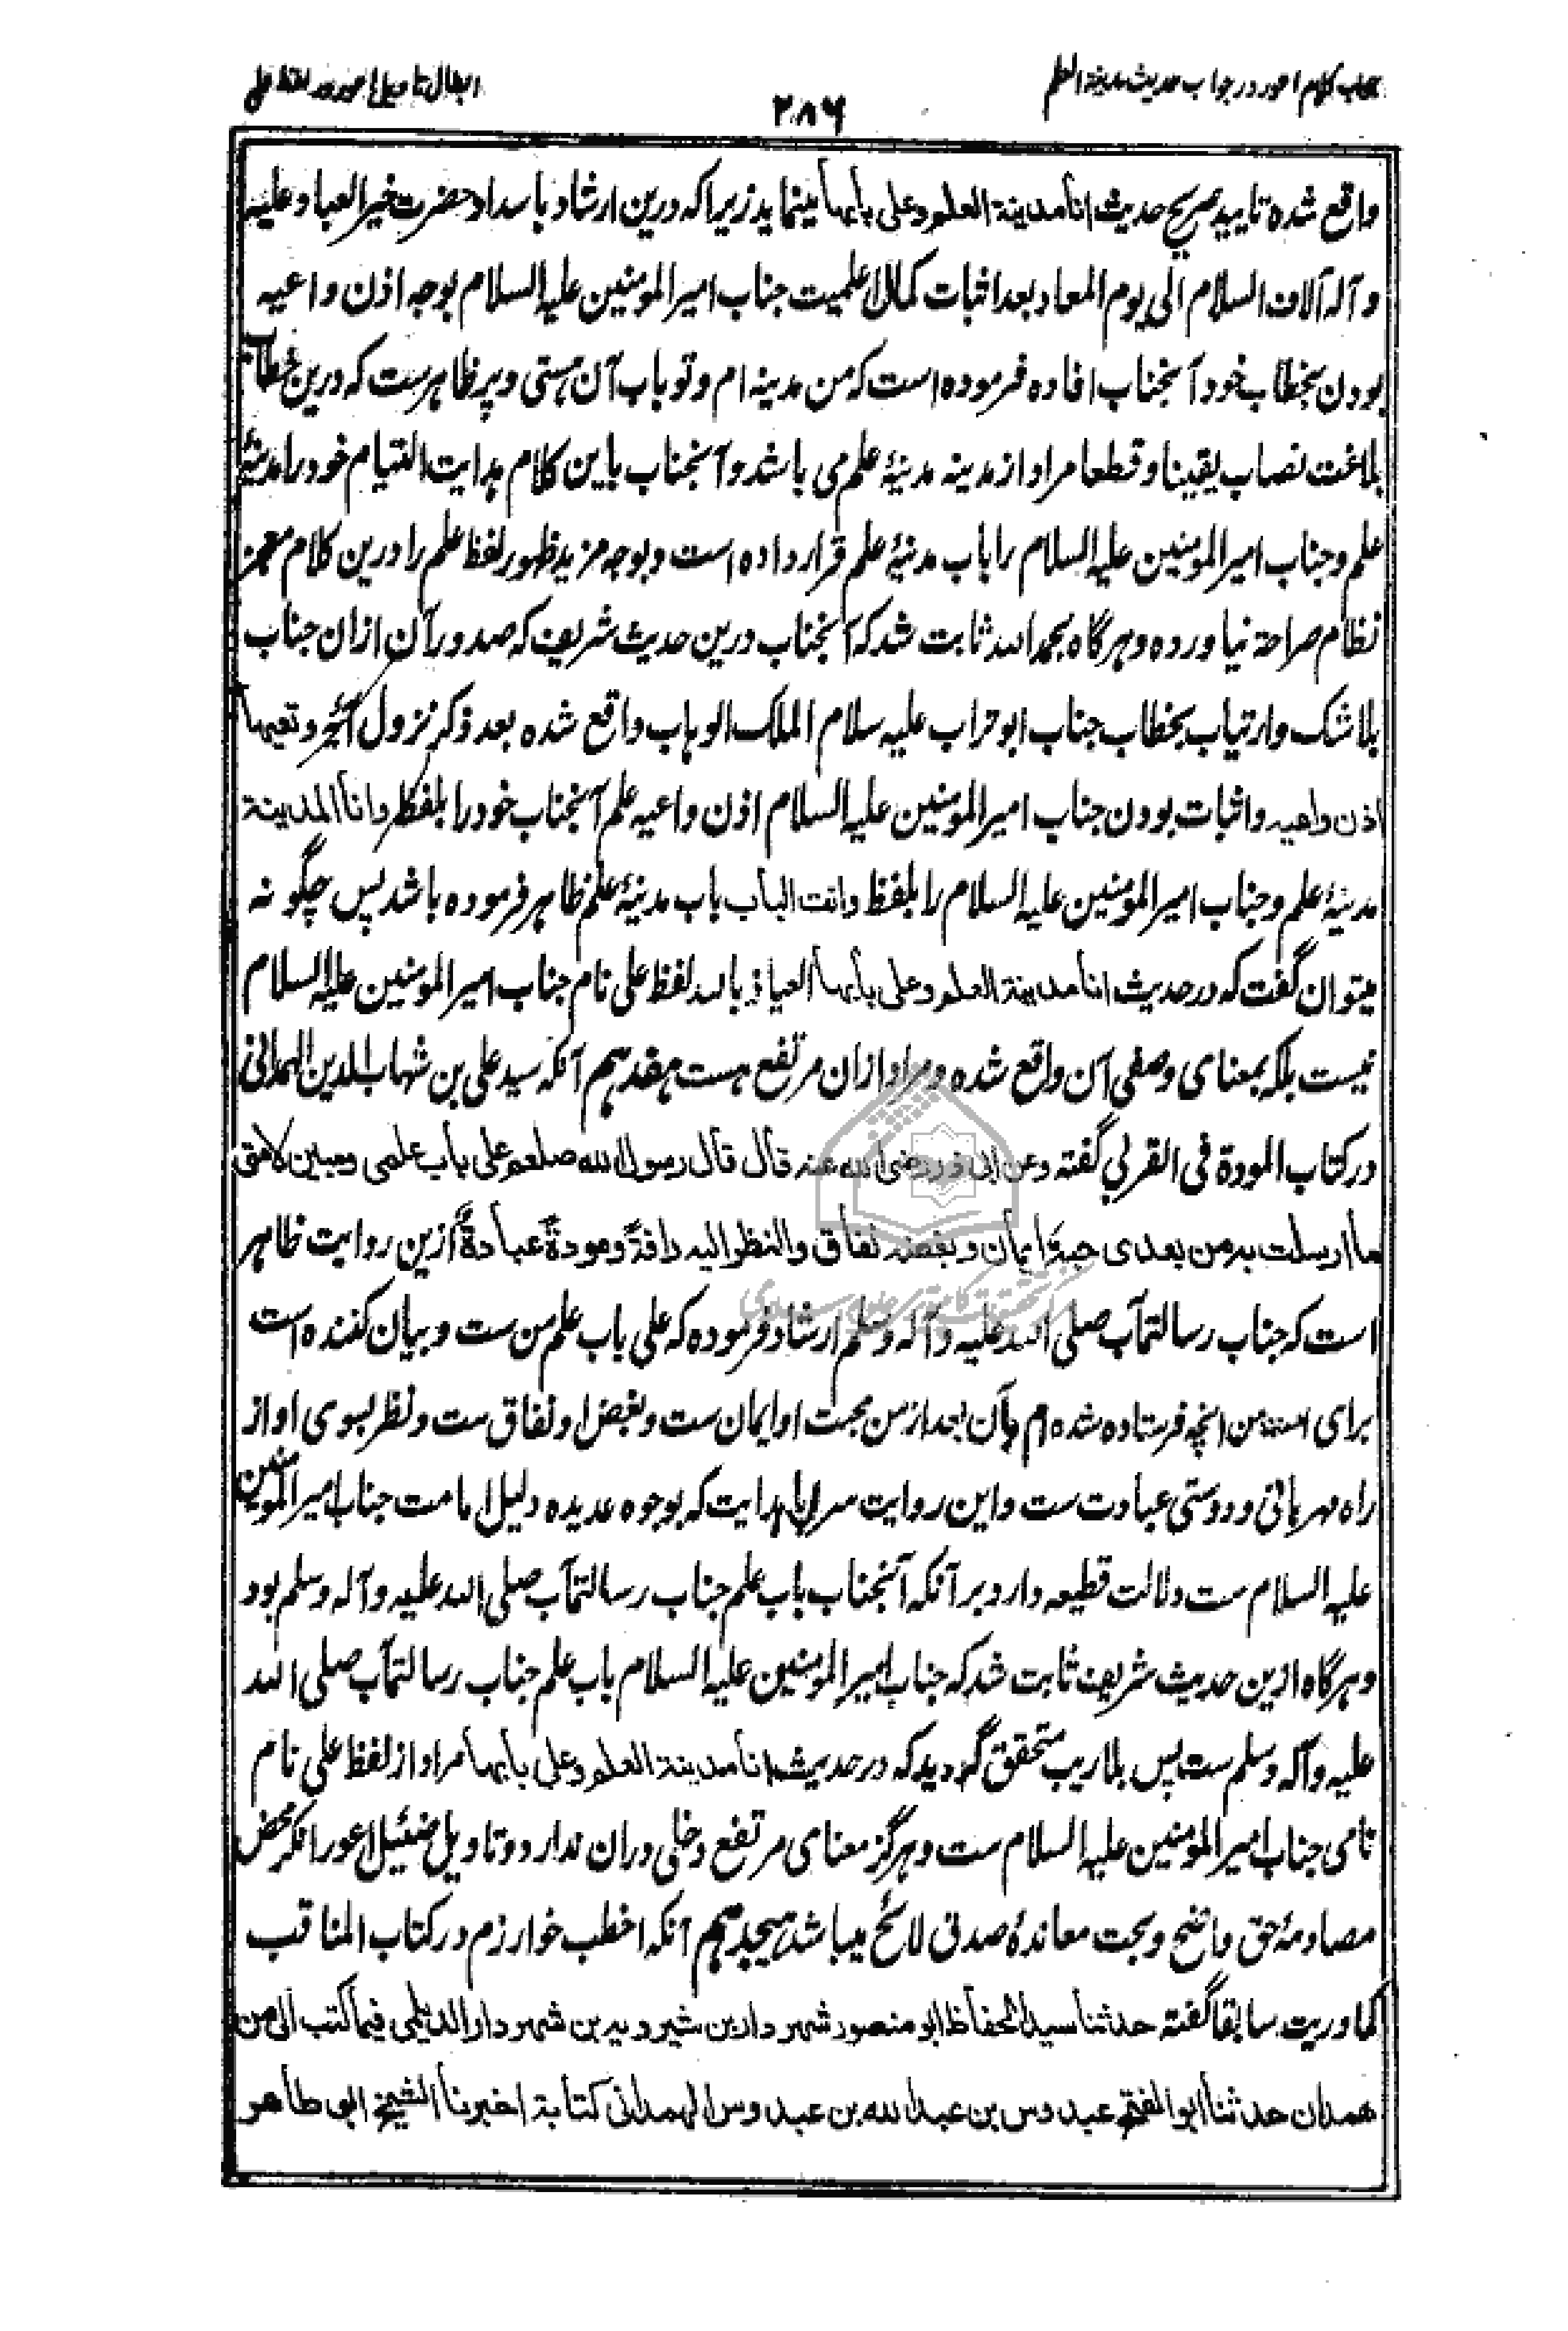 جواب کلام اعور در جواب حدیث مدینة العلم
۲۸۶
ابطال تاویل اعور در لفظ علی
واقع شده تایید صریح حدیث انا مدینة العلم وعلی بابها مینماید زیرا که درین ارشاد باسداد حضرت خیر العباد علیه
و آله آلاف السلام الی یوم المعاد بعد اثبات کمال اعلمیت جناب امیر المومنین علیه السلام بوجه اذن واعیه
بودن بخطاب خود آنجناب افاده فرموده است که من مدینه ام و تو باب آن هستی و پر ظاهرست که درین خطاب
بلاغت نصاب یقینا و قطعا مراد از مدینه مدینهٔ علم می باشد و آنجناب باین کلام هدایت التیام خود را مدینهٔ
علم و جناب امیر المومنین علیه السلام را باب مدینهٔ علم قرار داده است و بوجه مزید ظهور لفظ علم را درین کلام معجز
نظام صراحة نیاورده و هرگاه بحمد الله ثابت شد که آنجناب درین حدیث شریف که صدور آن ازان جناب
بلا شک و ارتیاب بخطاب جناب ابو تراب علیه سلام الملک الوهاب واقع شده بعد ذکر نزول آیهٔ وتعیها
اذن واعیه و اثبات بودن جناب امیر المومنین علیه السلام اذن واعیه علم آنجناب خود را بلفظ وانا المدینة
مدینهٔ علم و جناب امیر المومنین علیه السلام را بلفظ وانت الباب باب مدینهٔ علم ظاهر فرموده باشد پس چگونه
میتوان گفت که در حدیث انا مدینة العلم وعلی بابها العیاذ بالله لفظ علی نام جناب امیر المومنین علیه السلام
نیست بلکه بمعنای وصفی آن واقع شده و مراد ازان مرتفع هست هفدهم آنکه سید علی بن شهاب الدین الهمدانی
در کتاب المودة فی القربی گفته وعن ابی ذر رضی الله عنه قال قال رسول الله صلعم علی باب علمی ومبین لامتی
ما ارسلت به من بعدی حبه ایمان وبغضه نفاق والنظر الیه رافة ومودة عبادة ازین روایت ظاهر
است که جناب رسالتمآب صلی الله علیه و آله وسلم ارشاد فرموده که علی باب علم من ست و بیان کننده است
برای امت من انچه فرستاده شده ام بآن بعد از من محبت او ایمان ست و بغض او نفاق ست و نظر بسوی او از
راه مهربانی و دوستی عبادت ست و این روایت سراپا هدایت که بوجوه عدیده دلیل امامت جناب امیر المومنین
علیه السلام ست دلالت قطیعه دارد بر آنکه آنجناب باب علم جناب رسالتمآب صلی الله علیه و آله وسلم بود
و هرگاه ازین حدیث شریف ثابت شد که جناب امیر المومنین علیه السلام باب علم جناب رسالتمآب صلی الله
علیه و آله وسلم ست پس بلا ریب متحقق گردید که در حدیث انا مدینة العلم وعلی بابها مراد از لفظ علی نام
نامی جناب امیر المومنین علیه السلام ست و هرگز معنای مرتفع دخلی دران ندارد و تاویل ضئیل اعور انکر محض
مصادمهٔ حق واضح و بحت معاندهٔ صدق لائح میباشد هیجدهم آنکه اخطب خوارزم در کتاب المناقب
کما دریت سابقا گفته حدثنا سید الحفاظ ابو منصور شهردار بن شیرویه بن شهردار الدیلمی فیما کتب الی من
همدان حدثنا ابو الفتح عبدوس بن عبد الله بن عبدوس الهمدانی کتابة اخبرنا الشیخ ابو طاهر